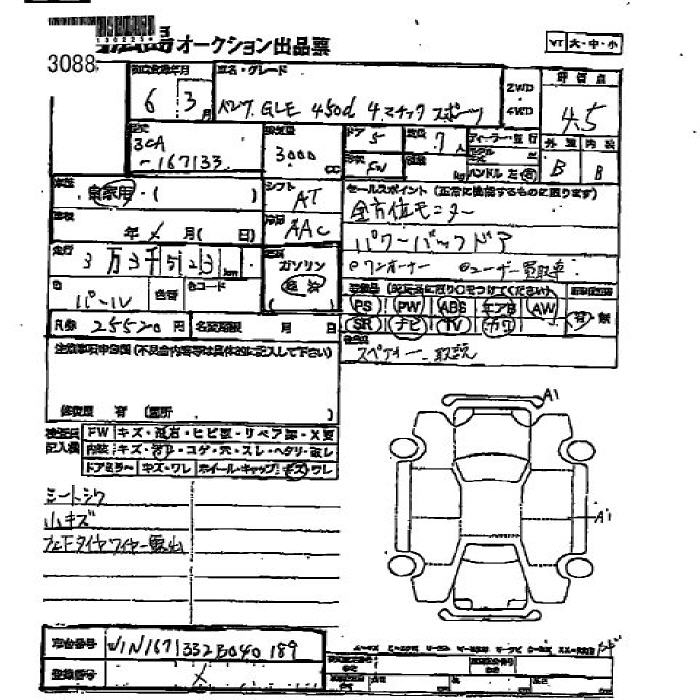 オークション出品票
VT 大・中・小
3088
初度登録年月 車名・グレード
6 3月 ベンツ GLE 450d 4マチック スポーツ
2WD
4WD
評価点
4.5
型式 3CA
-167133
排気量 3000 cc
ドア 5
定員 7人
ディーラー・並行
外装 内装
B B
形状 SW
積載 kg
ハンドル 左・右
車歴 自家用・( )
シフト AT
セールスポイント (正常に機能するものに限ります)
全方位モニター
車検 年 月( 日)
冷房 AAC
パワーバックドア
走行 3万3千523km
燃料 ガソリン 軽油
ワンオーナー ユーザー買取車
色 パール 色替 色コード
PS PW ABS エアB AW
SR ナビ TV カワ
有 無
R券 25520円 名変期限 月 日
スペアキー、取説
注意事項申告欄(不具合内容等は具体的に記入して下さい)
修復歴 有 (箇所 )
検査員記入欄
FW キズ・飛石・ヒビ割・リペア跡・X要
内装 キズ・汚レ・コゲ・穴・スレ・ヘタリ・破レ
ドアミラー キズ・ワレ ホイール・キャップ キズ・ワレ
A1
A1
シートシワ
小キズ
左Fタイヤワイヤー露出
車台番号 W1N1671332B040189
登録番号 X